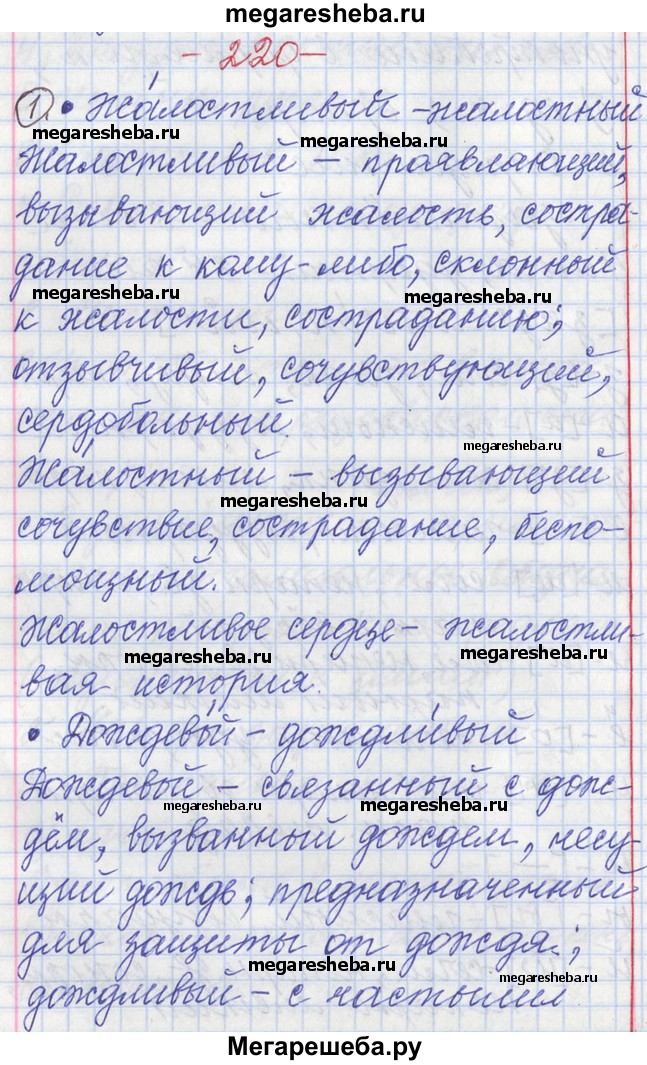 megaresheba.ru
- 220 -
1. • Жа́лостливый - жалостный
megaresheba.ru megaresheba.ru
Жалостливый - проявляющий,
вызывающий жалость, состра-
дание к кому-либо, склонный
megaresheba.ru megaresheba.ru
к жалости, состраданию;
отзывчивый, сочувствующий,
сердобольный.
megaresheba.ru
Жа́лостный - вызывающий
megaresheba.ru
сочувствие, сострадание, беспо-
мощный.
Жалостливое сердце - жалостли-
megaresheba.ru megaresheba.ru
вая история.
• Дождево́й - дождли́вый
Дождевой - связанный с дож-
megaresheba.ru megaresheba.ru
дём, вызванный дождем, несу-
щий дождь; предназначенный
для защиты от дождя.;
megaresheba.ru megaresheba.ru
дождливый - с частыми
Мегарешеба.ру